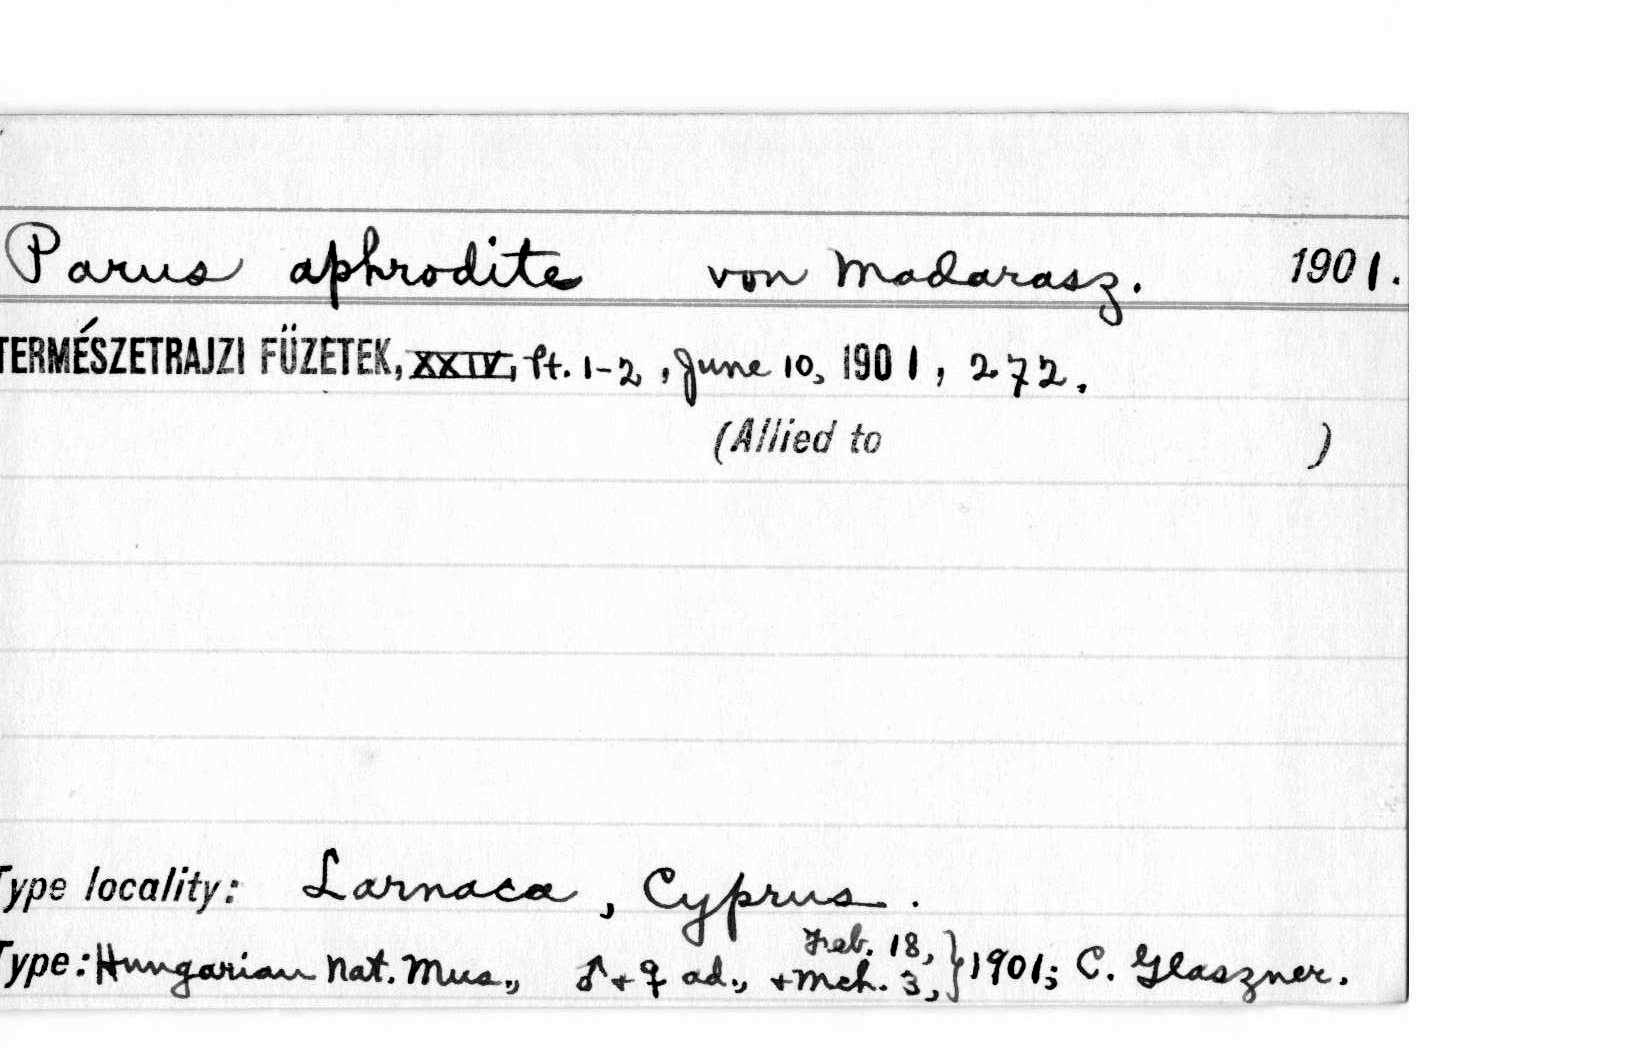 Parus aphrodite von Madarasz. 1901.
TERMÉSZETRAJZI FÜZETEK, XXIV, Pt. 1-2, June 10, 1901, 272.
(Allied to )
Type locality: Larnaca, Cyprus.
Type: Hungarian Nat. Mus., ♂ + ♀ ad., Feb. 18, + Mch. 3, } 1901; C. Glaszner.